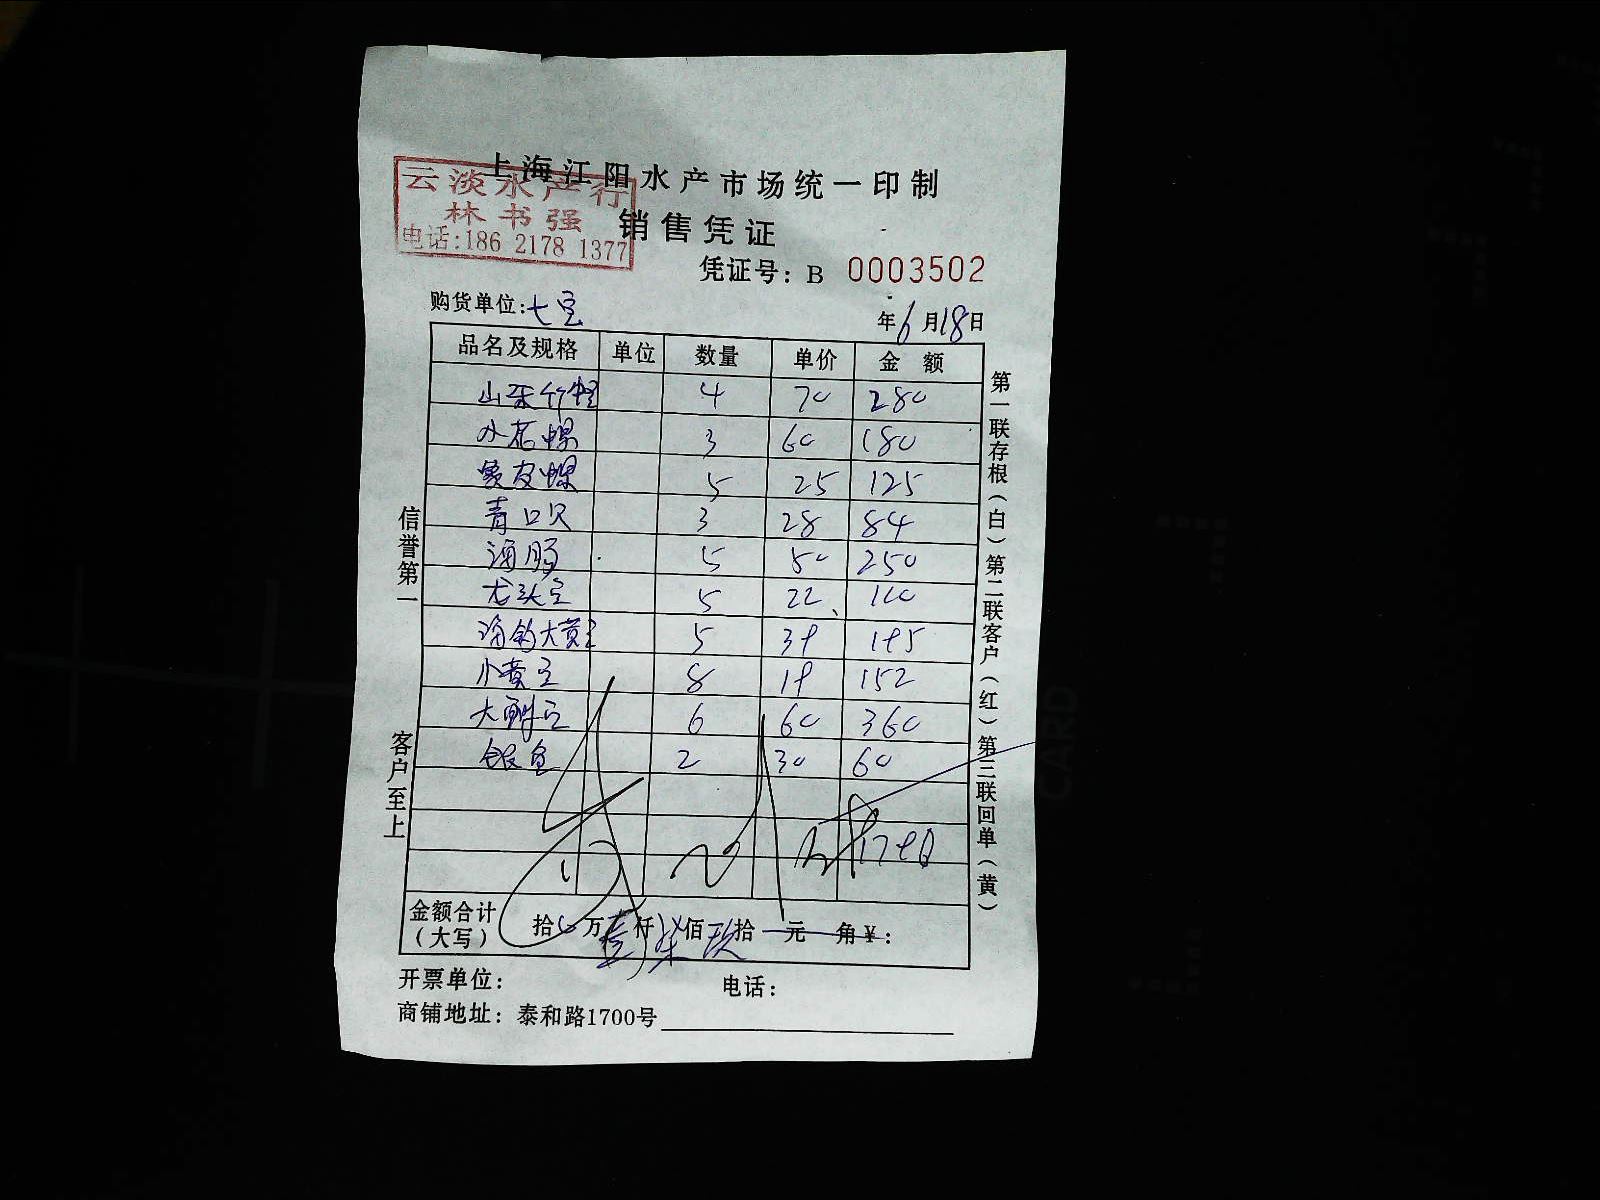 上海江阳水产市场统一印制
云淡水产行
林书强
电话:186 2178 1377
销售凭证
凭证号: B 0003502
购货单位:七宝
年6月18日
品名及规格 单位 数量 单价 金额
山东竹蛏 4 70 280
小花螺 3 60 180
象皮螺 5 25 125
青口贝 3 28 84
海肠 5 50 250
龙头鱼 5 22 110
海钓大黄鱼 5 39 195
小黄鱼 8 19 152
大 鱼 6 60 360
银鱼 2 30 60
金额合计(大写) 拾 万壹仟柒佰玖拾 元 角¥:
开票单位: 电话:
商铺地址: 泰和路1700号
信誉第一
客户至上
第一联存根(白)第二联客户(红)第三联回单(黄)